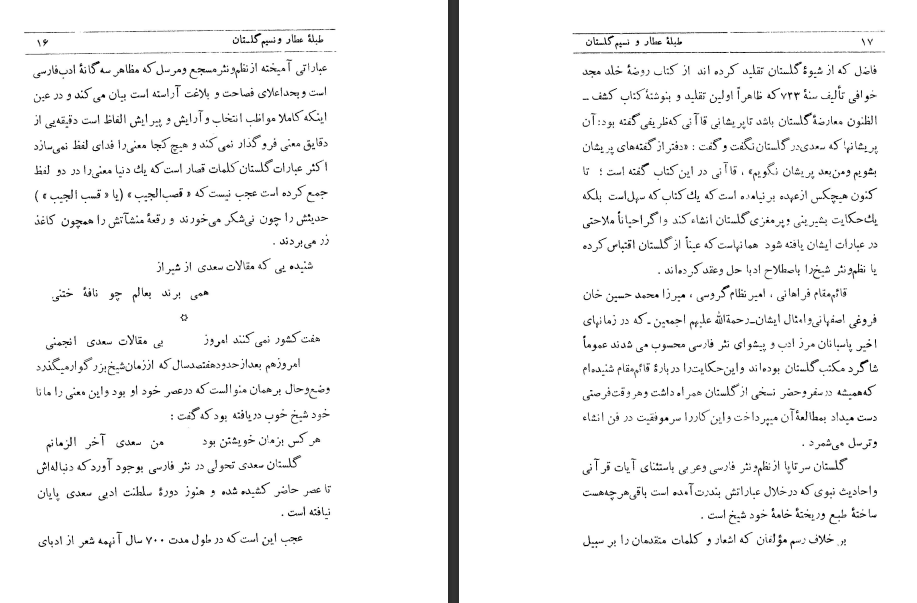 طبلهٔ عطار و نسیم گلستان ۱۶
عباراتی آمیخته از نظم و نثر مسجع و مرسل که مظاهر سه گانهٔ ادب فارسی
است و بحد اعلای فصاحت و بلاغت آراسته است بیان می کند و در عین
اینکه کاملا مواظب انتخاب و آرایش و پیرایش الفاظ است دقیقه یی از
دقایق معنی فرو گذار نمی کند و هیچ کجا معنی را فدای لفظ نمی سازد
اکثر عبارات گلستان کلمات قصار است که یك دنیا معنی را در دو لفظ
جمع کرده است عجب نیست که « قصب الجیب » (یا « قسب الجیب » )
حدیثش را چون نی شکر می خورند و رقعهٔ منشآتش را همچون کاغذ
زر می بردند .
شنیده یی که مقالات سعدی از شیراز
همی برند بعالم چو نافهٔ ختنی
☆
هفت کشور نمی کنند امروز بی مقالات سعدی انجمنی
امروز هم بعد از حدود هفتصد سال که از زمان شیخ بزرگوار میگذرد
وضع و حال بر همان منوال است که در عصر خود او بود و این معنی را مانا
خود شیخ خوب دریافته بود که گفت :
هر کس بزمان خویشتن بود من سعدی آخر الزمانم
گلستان سعدی تحولی در نثر فارسی بوجود آورد که دنباله اش
تا عصر حاضر کشیده شده و هنوز دورهٔ سلطنت ادبی سعدی پایان
نیافته است .
عجب این است که در طول مدت ۷۰۰ سال آنهمه شعر از ادبای
طبلهٔ عطار و نسیم گلستان ۱۷
فاضل که از شیوهٔ گلستان تقلید کرده اند از کتاب روضهٔ خلد مجد
خوافی تألیف سنهٔ ۷۳۳ که ظاهراً اولین تقلید و بنوشتهٔ کتاب کشف ـ
الظنون معارضهٔ گلستان باشد تا پریشانی قاآنی که ظریفی گفته بود: آن
پریشانها که سعدی در گلستان نگفت و گفت : «دفتر از گفته های پریشان
بشویم و من بعد پریشان نگویم» ، قاآنی در این کتاب گفته است ؛ تا
کنون هیچکس از عهده بر نیامده است که یك کتاب که سهل است بلکه
یك حکایت بشیرینی و پر مغزی گلستان انشاء کند و اگر احیاناً ملاحتی
در عبارات ایشان یافته شود همانهاست که عیناً از گلستان اقتباس کرده
یا نظم و نثر شیخ را باصطلاح ادبا حل و عقد کرده اند .
قائم مقام فراهانی ، امیر نظام گروسی ، میرزا محمد حسین خان
فروغی اصفهانی و امثال ایشان ـ رحمة الله علیهم اجمعین ـ که در زمانهای
اخیر پاسبانان مرز ادب و پیشوای نثر فارسی محسوب می شدند عموماً
شاگرد مکتب گلستان بوده اند و این حکایت را دربارهٔ قائم مقام شنیده ام
که همیشه در سفر و حضر نسخی از گلستان همراه داشت و هر وقت فرصتی
دست میداد بمطالعهٔ آن میپرداخت و این کار را سر موفقیت در فن انشاء
و ترسل می شمرد .
گلستان سر تا پا از نظم و نثر فارسی و عربی باستثنای آیات قرآنی
و احادیث نبوی که در خلال عباراتش بندرت آمده است باقی هر چه هست
ساختهٔ طبع و ریختهٔ خامهٔ خود شیخ است .
بر خلاف رسم مؤلفان که اشعار و کلمات متقدمان را بر سبیل